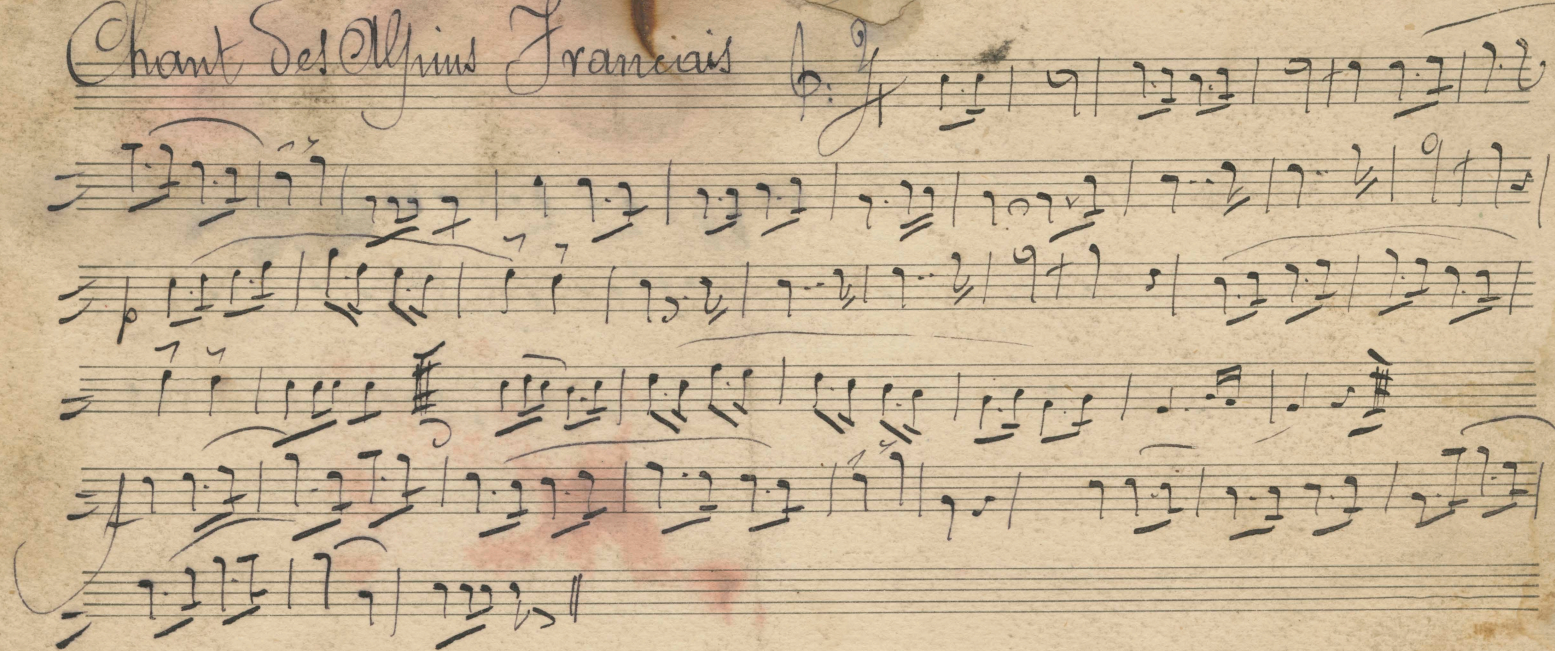 Chant des Alpins Francais 2/4
p
f